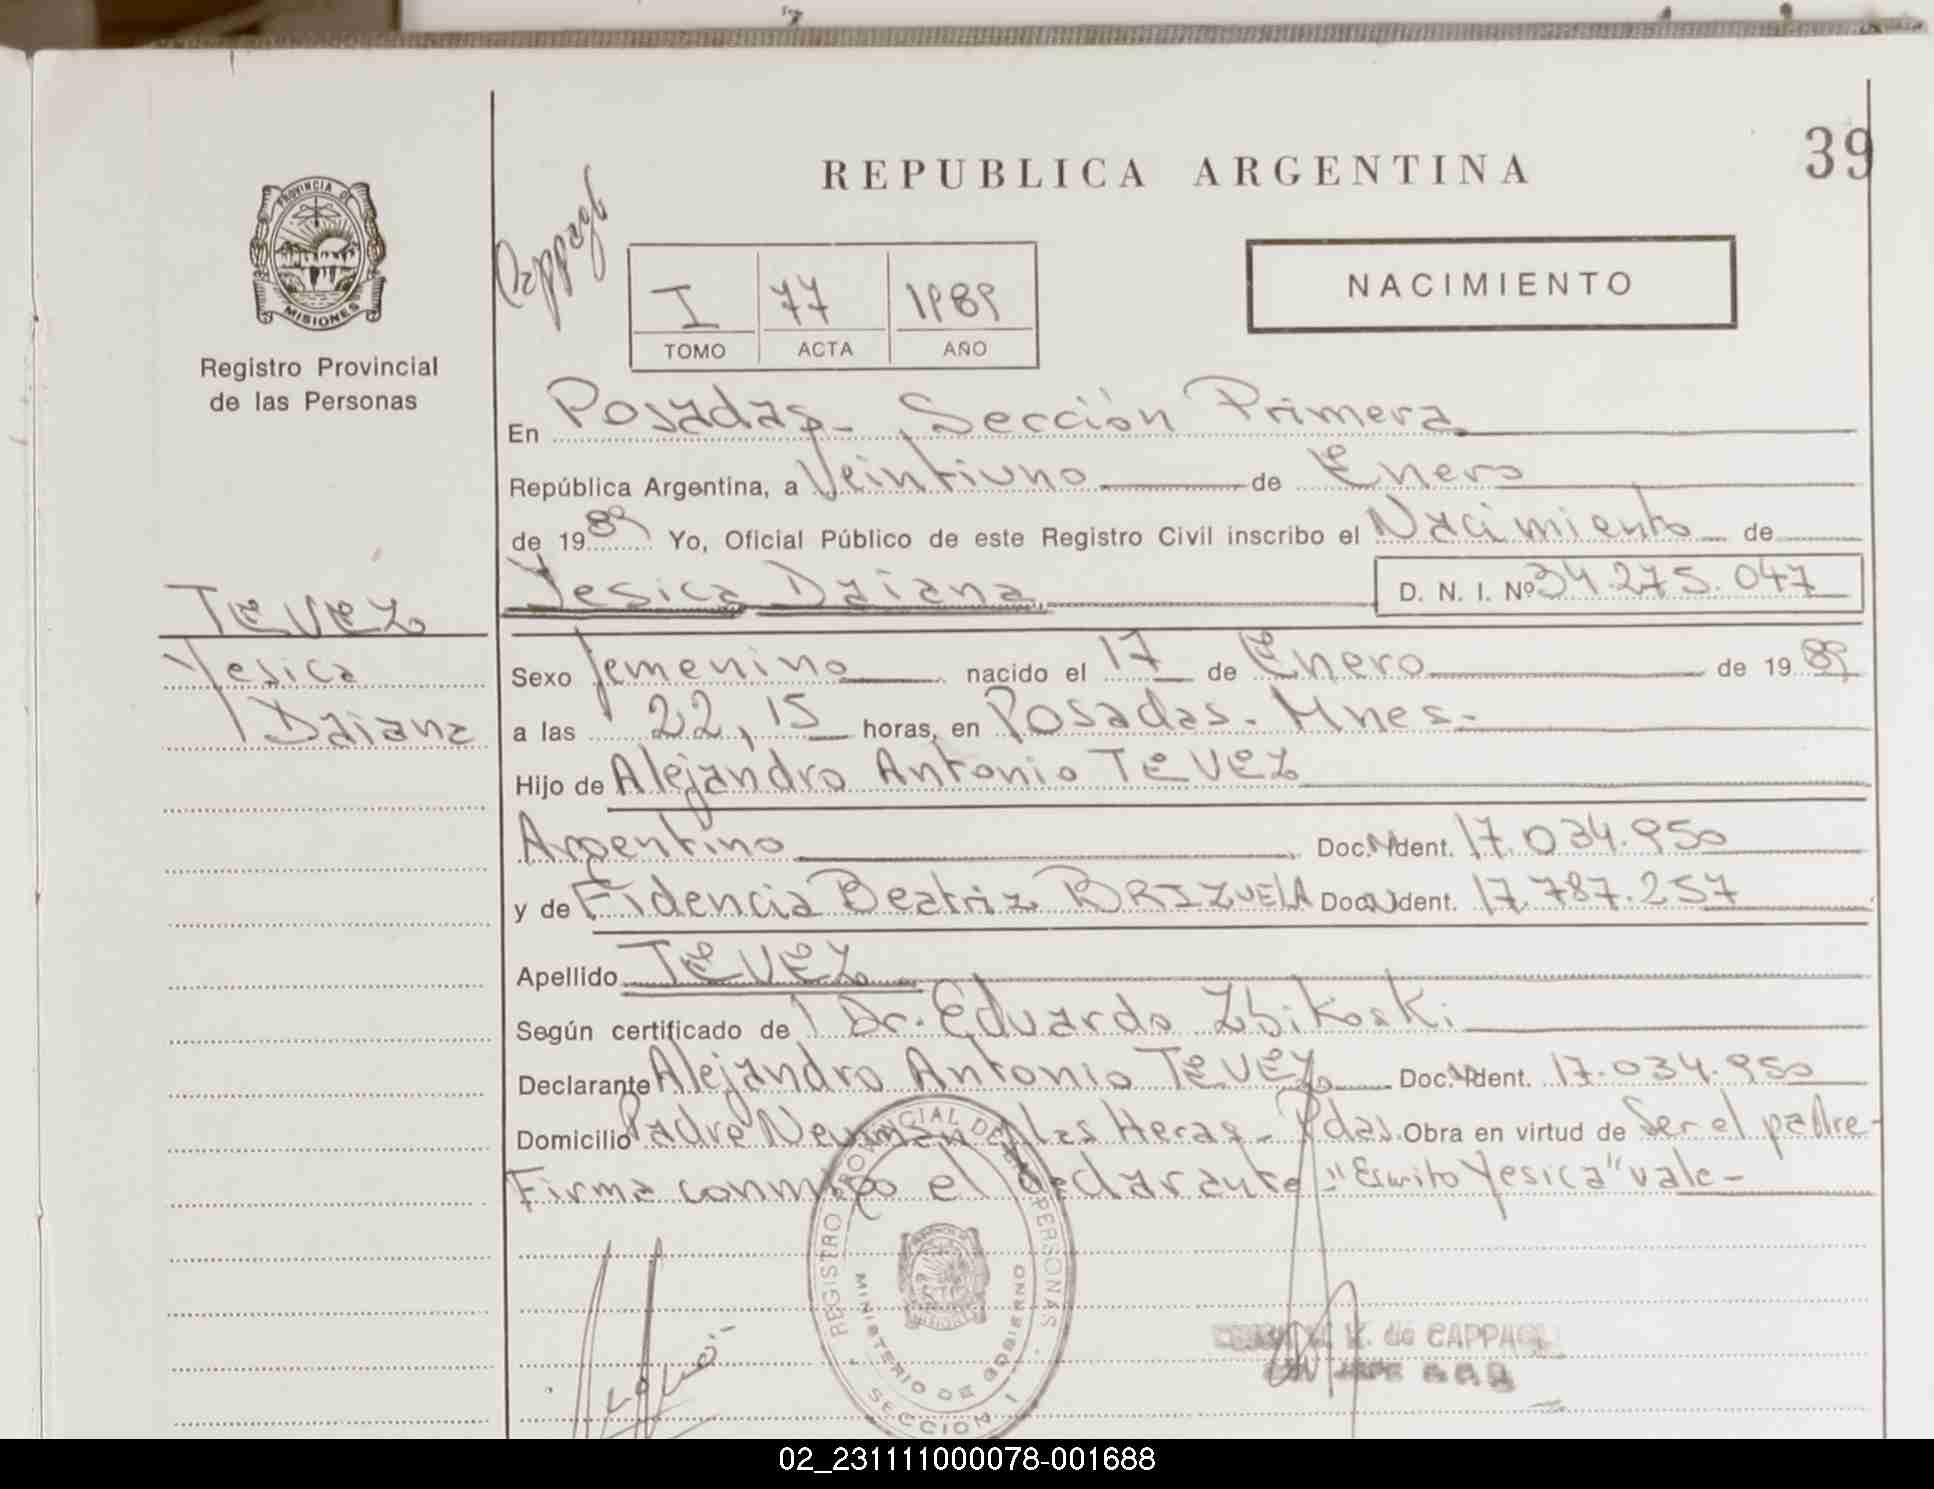 39
REPUBLICA ARGENTINA
PROVINCIA DE
MISIONES
Registro Provincial
de las Personas
I 77 1989
TOMO ACTA AÑO
NACIMIENTO
En Posadas - Sección Primera
República Argentina, a Veintiuno de Enero
de 1989 Yo, Oficial Público de este Registro Civil inscribo el Nacimiento de
Yesica Daiana D. N. I. Nº 34.275.047
TEVEZ
Yesica
Daiana
Sexo femenino nacido el 17 de Enero de 1989
a las 22,15 horas, en Posadas - Mnes -
Hijo de Alejandro Antonio TEVEZ
Argentino Doc. Ident. 17.034.950
y de Fidencia Beatriz BRIZUELA Doc. Ident. 17.787.257
Apellido TEVEZ
Según certificado de Dr. Eduardo Zbikoski
Declarante Alejandro Antonio TEVEZ Doc. Ident. 17.034.950
Domicilio Padre Neuman y Las Heras - Pdas. Obra en virtud de Ser el padre -
Firma conmigo el declarante - "Escrito Yesica" vale -
REGISTRO PROVINCIAL DE LAS PERSONAS
MINISTERIO DE GOBIERNO
SECCION 1
MISIONES
de CAPPAGLI
02_231111000078-001688